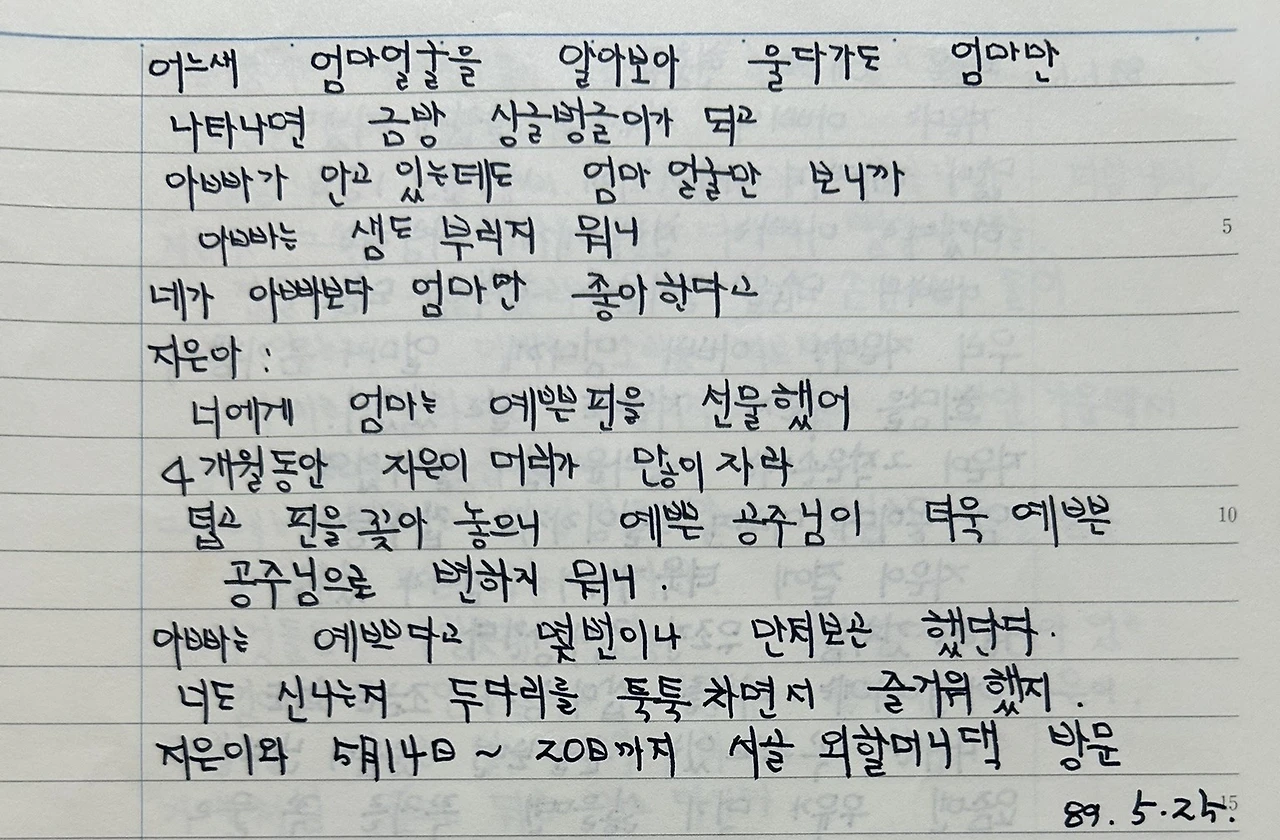 어느새 엄마얼굴을 알아보아 울다가도 엄마만
나타나면 금방 싱글벙글이가 되고
아빠가 안고 있는데도 엄마 얼굴만 보니까
아빠는 샘도 부리지 뭐니
5
네가 아빠보다 엄마만 좋아한다고
지은아 :
너에게 엄마는 예쁜핀을 선물했어
4개월동안 지은이 머리가 많이 자라
10
텁고 핀을 꽂아 놓으니 예쁜 공주님이 더욱 예쁜
공주님으로 변하지 뭐니.
아빠는 예쁘다고 몇번이나 만져보곤 했단다.
너도 신나는지 두다리를 툭툭 차면서 즐거워했지.
지은이와 5月14日 ~ 20日까지 시골 외할머니댁 방문
15
89. 5. 25.